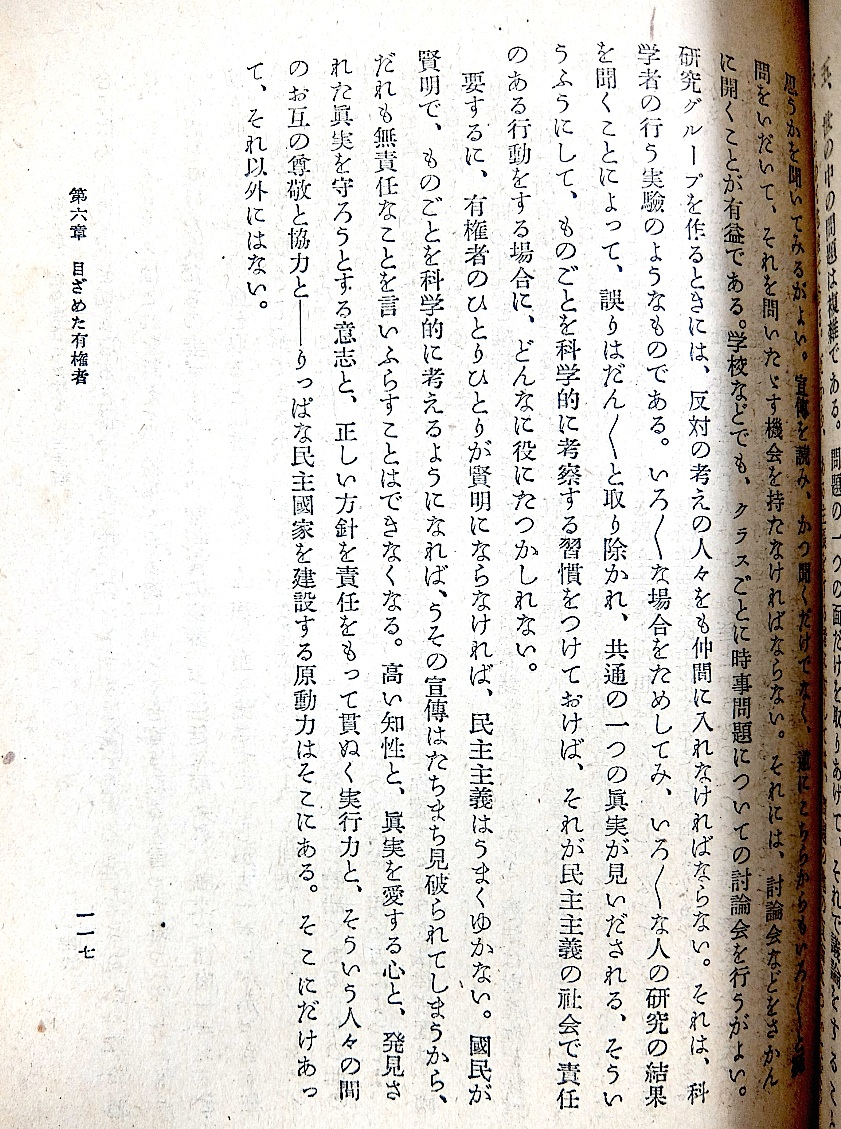 思うかを聞いてみるがよい。宣傳を読み、かつ聞くだけでなく、逆にこちらからもいろ〳〵と
問をいだいて、それを問いたゞす機会を持たなければならない。それには、討論会などをさかん
に開くことが有益である。学校などでも、クラスごとに時事問題についての討論会を行うがよい。
研究グループを作るときには、反対の考えの人々をも仲間に入れなければならない。それは、科
学者の行う実驗のようなものである。いろ〳〵な場合をためしてみ、いろ〳〵な人の研究の結果
を聞くことによって、誤りはだん〳〵と取り除かれ、共通の一つの眞実が見いだされる、そうい
うふうにして、ものごとを科学的に考察する習慣をつけておけば、それが民主主義の社会で責任
のある行動をする場合に、どんなに役にたつかしれない。
要するに、有権者のひとりひとりが賢明にならなければ、民主主義はうまくゆかない。國民が
賢明で、ものごとを科学的に考えるようになれば、うその宣傳はたちまち見破られてしまうから、
だれも無責任なことを言いふらすことはできなくなる。高い知性と、眞実を愛する心と、発見さ
れた眞実を守ろうとする意志と、正しい方針を責任をもって貫ぬく実行力と、そういう人々の間
のお互の尊敬と協力と——りっぱな民主國家を建設する原動力はそこにある。そこにだけあっ
て、それ以外にはない。
第六章 目ざめた有権者
一一七